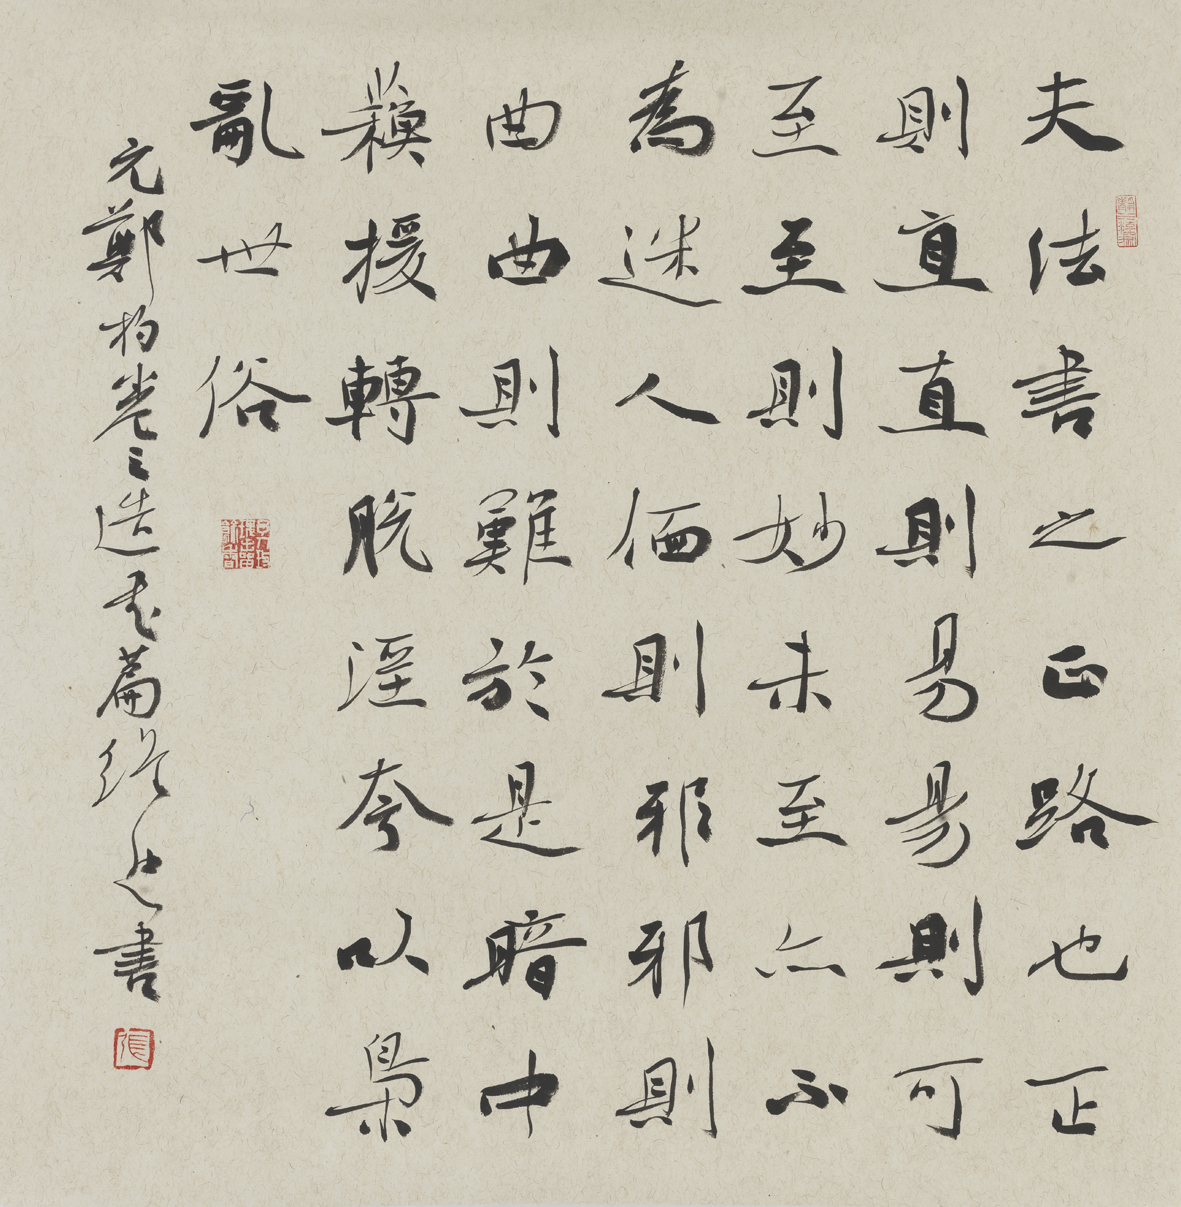 夫法書之正路也正
則直直則易易則可
至至則妙未至亦不
為迷人偭則邪邪則
曲曲則難於是暗中
蘓援轉脫淫夸以梟
亂世俗
元鄭枃卷之造玄篇書